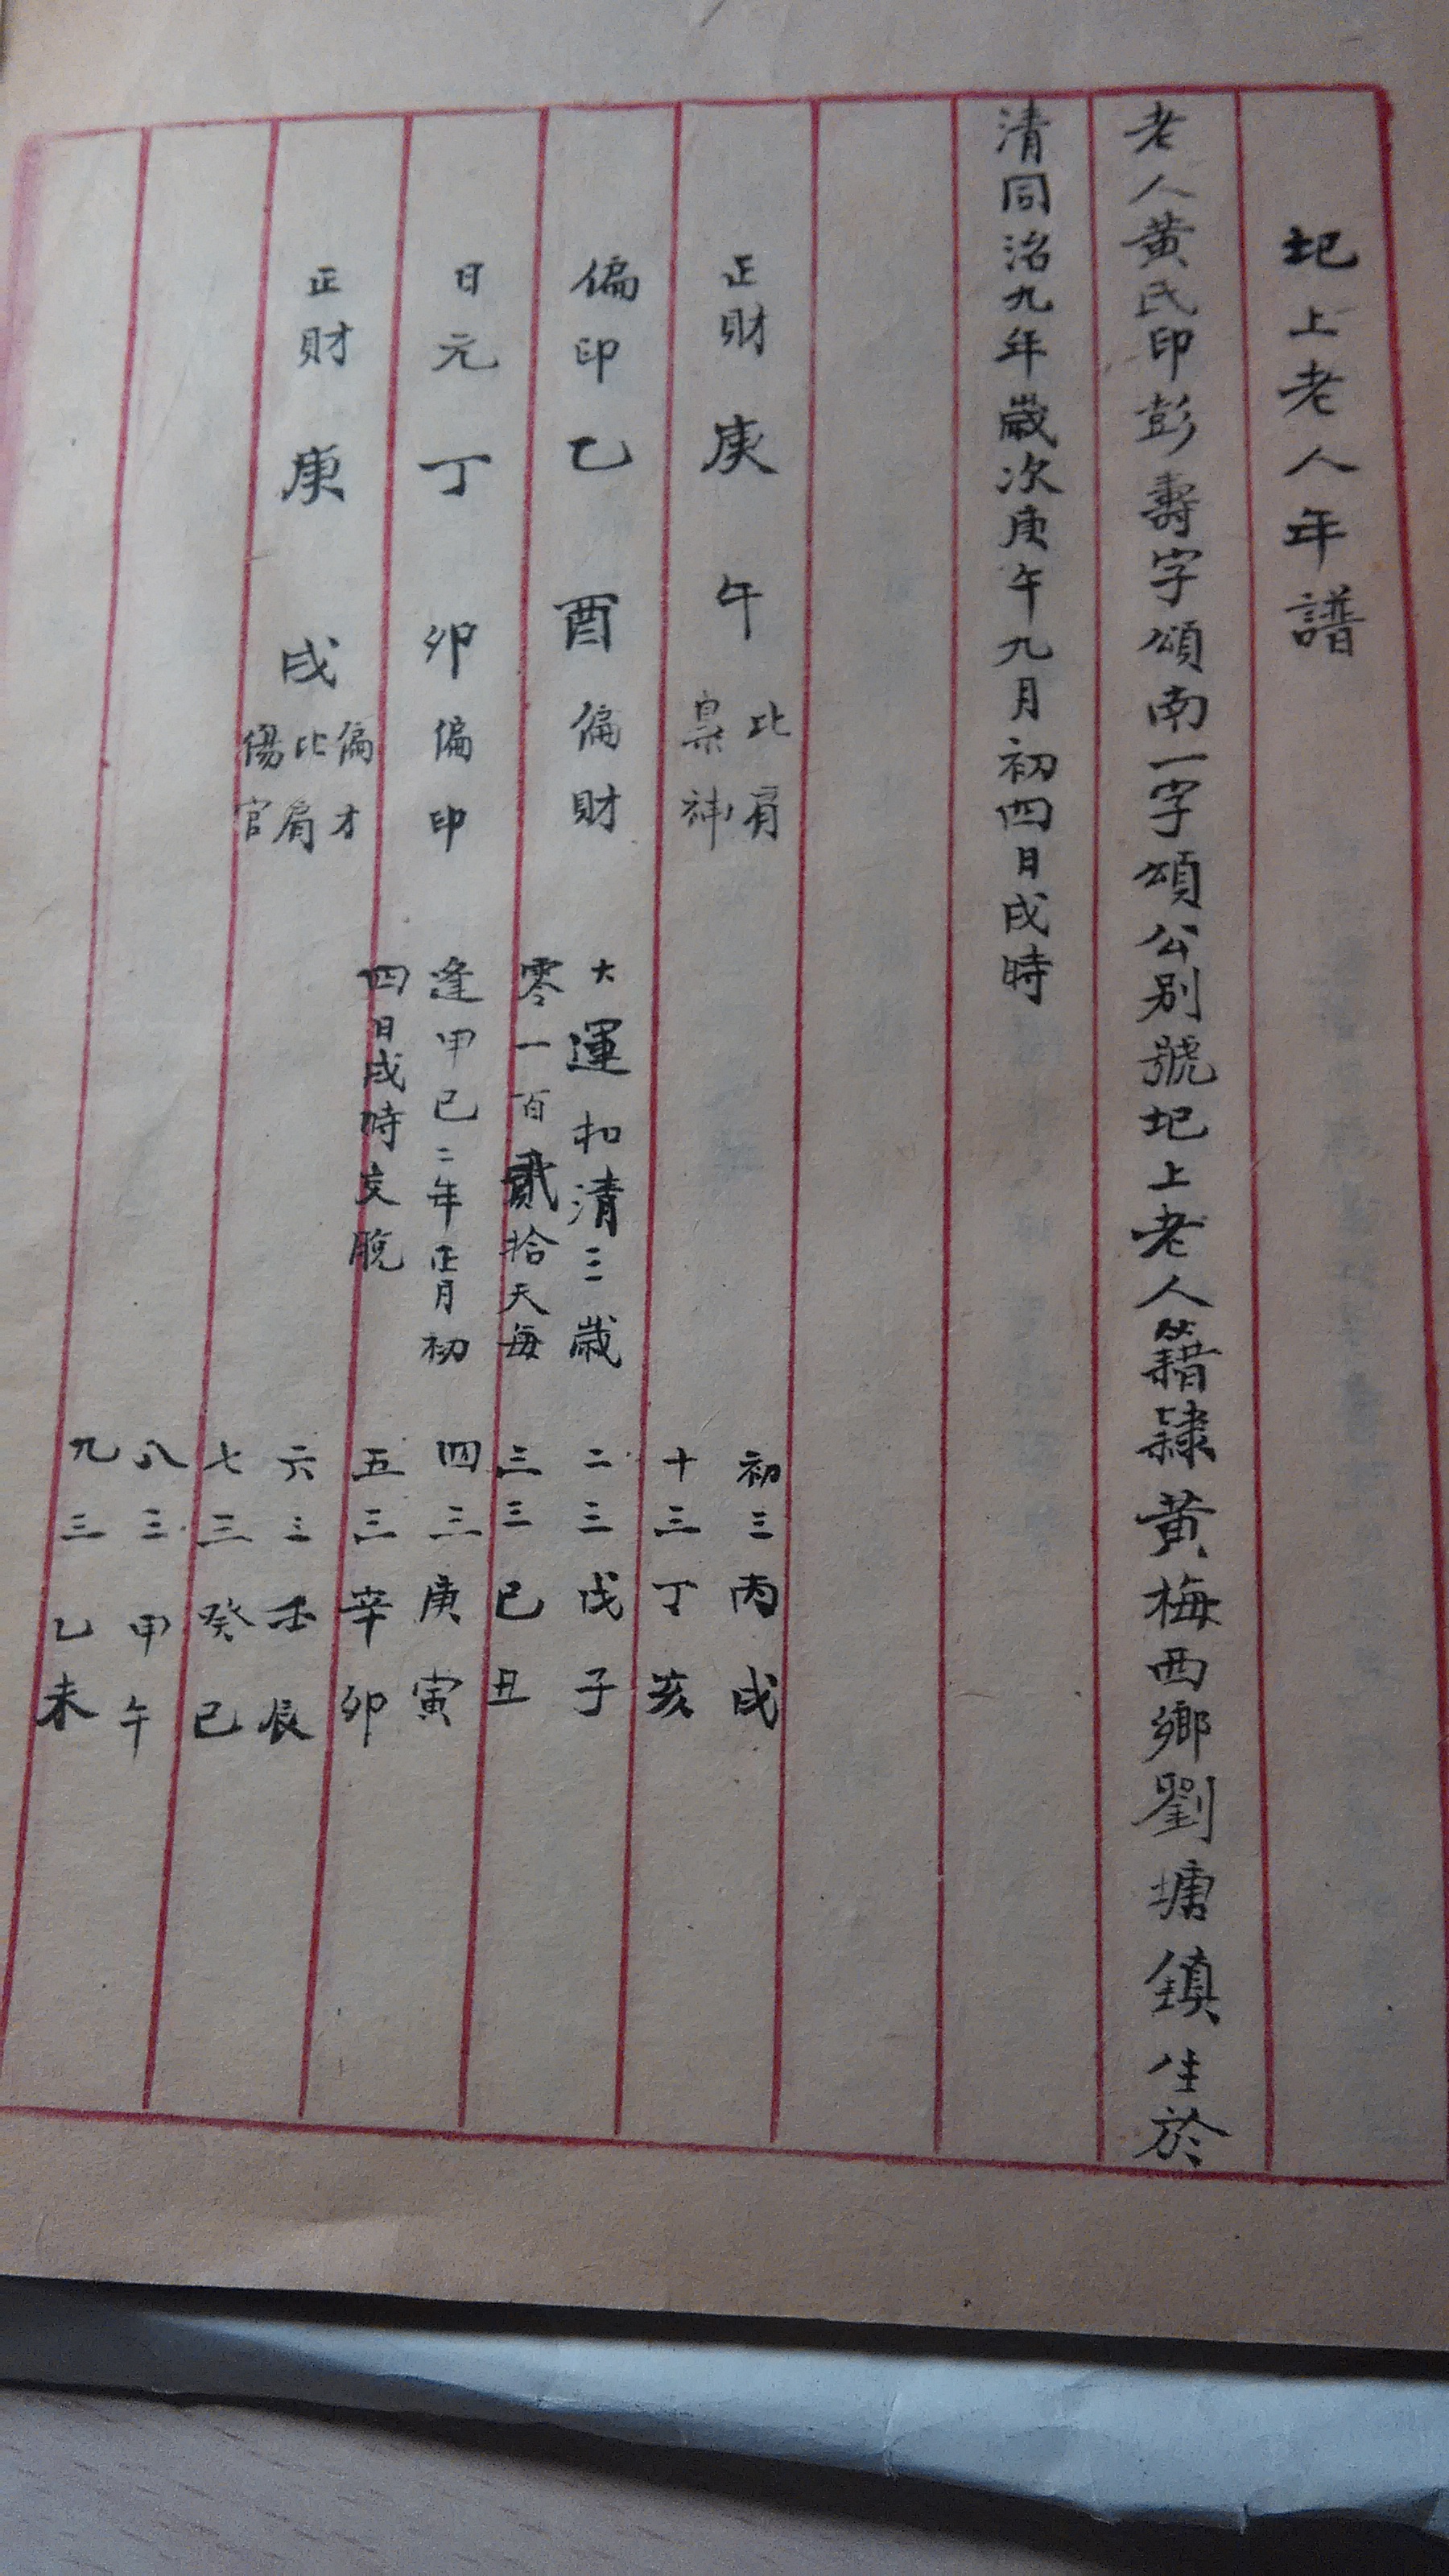 圯上老人年譜
老人黄氏印彭壽字頌南一字頌公别號圯上老人籍隸黄梅西鄉劉塘鎮生於
清同治九年歲次庚午九月初四日戌時
正財 庚 午 比肩 梟神
偏印 乙 酉 偏財
日元 丁 卯 偏印
正財 庚 戌 偏才 比肩 傷官
大運扣清三歲
零一百貳拾天每
逢甲己二年正月初
四日戌時交脫
初三丙戌
十三丁亥
二三戊子
三三己丑
四三庚寅
五三辛卯
六三壬辰
七三癸巳
八三甲午
九三乙未